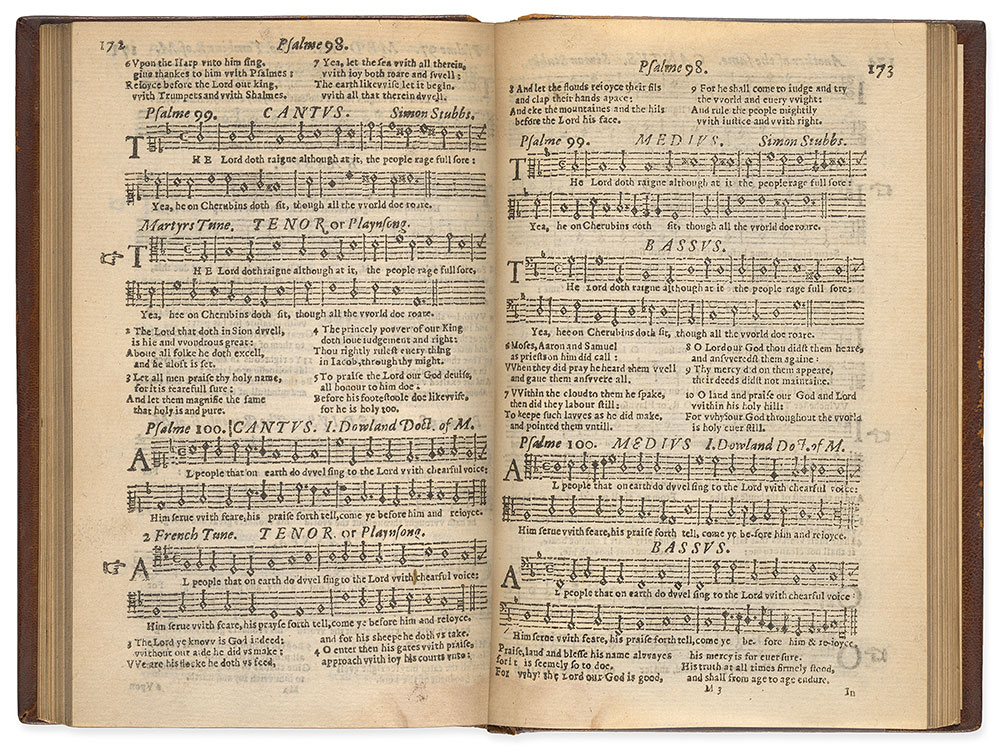 172
Psalme 98.
6 Vpon the Harp vnto him sing,
giue thankes to him vvith Psalmes:
Reioyce before the Lord our king,
vvith Trumpets and vvith Shalmes.
7 Yea, let the sea vvith all therein,
vvith ioy both roare and svvell:
The earth likevvise let it begin,
vvith all that therein dvvell.
Psalme 99. CANTVS. Simon Stubbs.
THE Lord doth raigne although at it, the people rage full sore:
Yea, he on Cherubins doth sit, though all the vvorld doe roare.
Martyrs Tune. TENOR or Playnsong.
THE Lord doth raigne although at it, the people rage full sore,
Yea, hee on Cherubins doth sit, though all the vvorld doe roare.
2 The Lord that doth in Sion dvvell,
is hie and vvondrous great:
Aboue all folke he doth excell,
and he aloft is set.
3 Let all men praise thy holy name,
for it is fearefull sure:
And let them magnifie the same
that holy is and pure.
4 The princely povver of our King
doth loue iudgement and right:
Thou rightly rulest euery thing
in Iacob, through thy might.
5 To praise the Lord our God deuise,
all honour to him doe:
Before his footestoole doe likevvise,
for he is holy too.
Psalme 100. CANTVS. I. Dowland Doct. of M.
AL people that on earth do dvvel sing to the Lord vvith chearful voice:
Him serue vvith feare, his praise forth tell, come ye before him and reioyce.
2 French Tune. TENOR or Playnsong.
AL people that on earth do dvvel sing to the Lord vvith chearful voice:
Him serue vvith feare, his prayse forth tell, come ye before him and reioyce.
3 The Lord ye knovv is God indeed:
vvithout our aide he did vs make:
VVe are his flocke he doth vs feed,
and for his sheepe he doth vs take.
4 O enter then his gates vvith praise,
approach vvith ioy his courts vnto:
173
Psalme 98.
8 And let the flouds reioyce their fils
and clap their hands apace:
And eke the mountaines and the hils
before the Lord his face.
9 For he shall come to iudge and try
the vvorld and euery vvight:
And rule the people mightily
vvith iustice and vvith right.
Psalme 99. MEDIVS. Simon Stubbs.
THe Lord doth raigne although at it the people rage full sore:
Yea, he on Cherubins doth sit, though all the vvorld doe roare.
BASSVS.
THe Lord doth raigne although at it the people rage full sore:
Yea, hee on Cherubins doth sit, though all the vvorld doe roare.
6 Moses, Aaron and Samuel
as priests on him did call:
VVhen they did pray he heard them vvell
and gaue them ansvvere all.
7 VVithin the cloud to them he spake,
then did they labour still:
To keepe such lavves as he did make,
and pointed them vntill.
8 O Lord our God thou didst them heare,
and ansvveredst them againe:
9 Thy mercy did on them appeare,
their deeds didst not maintaine.
10 O laud and praise our God and Lord
vvithin his holy hill:
For vvhy our God throughout the vvorld
is holy euer still.
Psalme 100. MEDIVS I. Dowland Doct. of M.
AL people that on earth do dvvel sing to the Lord vvith chearful voice:
Him serue vvith feare, his praise forth tell, come ye be-fore him and reioyce.
BASSVS.
AL people that on earth do dvvel sing to the Lord vvith chearful voice
Him serue vvith feare, his praise forth tell, come ye be- fore him & reioyce.
Praise, laud and blesse his name alvvayes
for it is seemely so to doe.
For vvhy? the Lord our God is good,
his mercy is for euer sure.
His truth at all times firmely stood,
and shall from age to age endure.
M 3
In